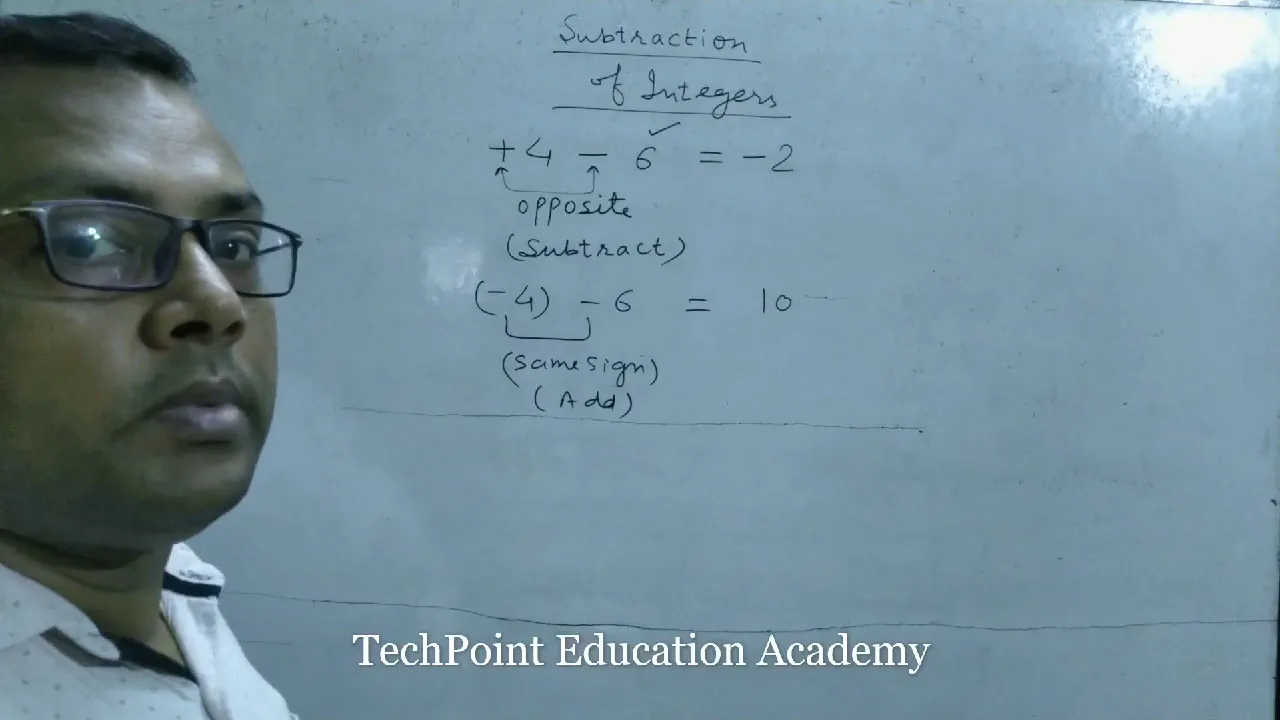 Subtraction
of Integers
+4 - 6 ✓ = -2
opposite
(Subtract)
(-4) - 6 = 10
(Same sign)
(Add)
TechPoint Education Academy